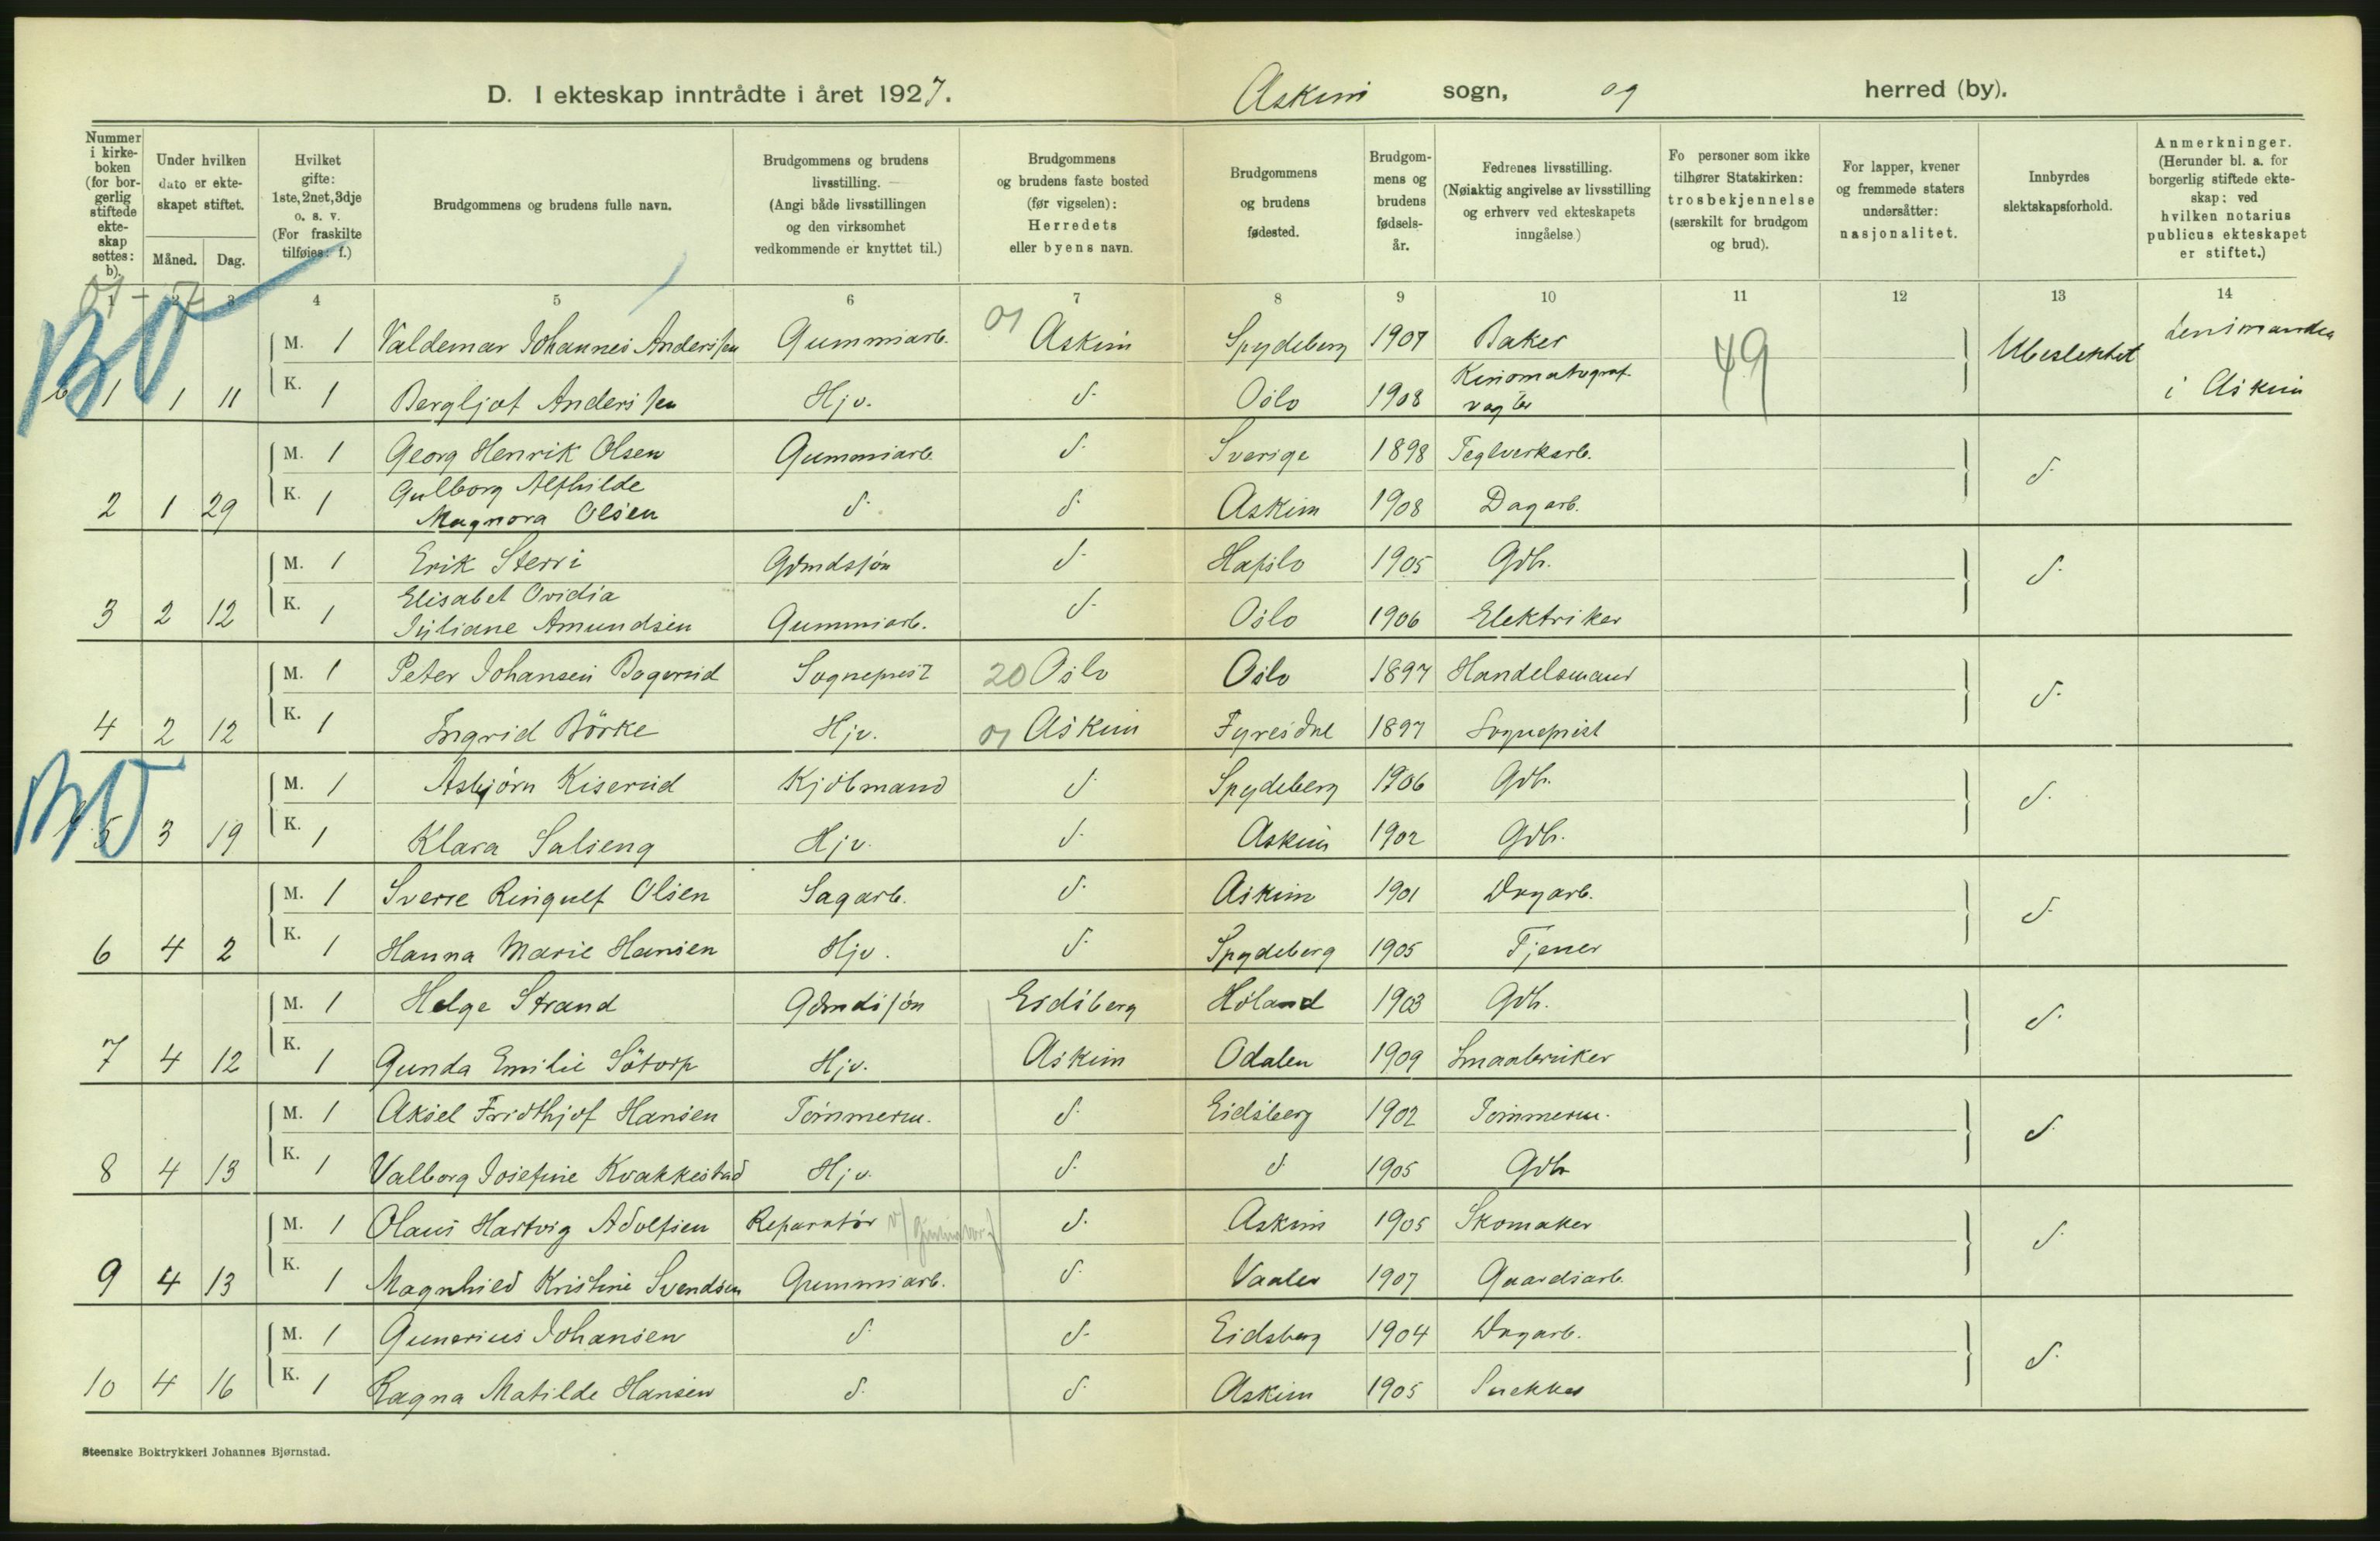 D. I ekteskap inntrådte i året 1927. Askim sogn, og herred (by).
Nummer i kirkeboken (for borgerlig stiftede ekteskap settes: b).
Under hvilken dato er ekteskapet stiftet.
Måned. Dag.
Hvilket gifte: 1ste, 2net, 3dje o. s. v. (For fraskilte tilføies: f.)
Brudgommens og brudens fulle navn.
Brudgommens og brudens livsstilling. (Angi både livsstillingen og den virksomhet vedkommende er knyttet til.)
Brudgommens og brudens faste bosted (før vigselen): Herredets eller byens navn.
Brudgommens og brudens fødested.
Brudgommens og brudens fødselsår.
Fedrenes livsstilling. (Nøiaktig angivelse av livsstilling og erhverv ved ekteskapets inngåelse)
Fo personer som ikke tilhører Statskirken: trosbekjennelse (særskilt for brudgom og brud).
For lapper, kvener og fremmede staters undersåtter: nasjonalitet.
Innbyrdes slektskapsforhold.
Anmerkninger. (Herunder bl. a. for borgerlig stiftede ekteskap: ved hvilken notarius publicus ekteskapet er stiftet.)
1 2 3 4 5 6 7 8 9 10 11 12 13 14
M. 1 Valdemar Johannes Anderssen Gummiarb. 01 Askim Spydeberg 1907 Baker 49 Ubeslektet
b 1 1 11 K. 1 Bergljot Anderssen Hjv. d. Oslo 1908 Kinomatograf vagter i Askim
M. 1 Georg Henrik Olsen Gummiarb. d. Sverige 1898 Teglverksarb. d.
2 1 29 K. 1 Gulborg Alfhilde Magnora Olsen d. d. Askim 1908 Dagarb.
M. 1 Erik Sterri Gdmdssøn d. Hafslo 1905 Gdb. d.
3 2 12 K. 1 Elisabet Ovidia Juliane Amundsen Gummiarb. d. Oslo 1906 Elektriker
M. 1 Peter Johansen Bogerud Sogneprest 20 Oslo Oslo 1897 Handelsmand d.
4 2 12 K. 1 Ingrid Börke Hjv. 01 Askim Fyresdal 1897 Sogneprest
M. 1 Asbjörn Kiserud Kjöbmand d. Spydeberg 1906 Gdb. d.
5 3 19 K. 1 Klara Salseng Hjv. d. Askim 1902 Gdb.
M. 1 Sverre Ringulf Olsen Sagarb. d. Askim 1901 Dagarb. d.
6 4 2 K. 1 Hanna Marie Hansen Hjv. d. Spydeberg 1905 Tjener
M. 1 Helge Strand Gdmdssøn Eidsberg Høland 1903 Gdb. d.
7 4 12 K. 1 Gunda Emilie Sötorp Hjv. Askim Odalen 1909 Smaabruker
M. 1 Aksel Fridthjof Hansen Tömmerm. d. Eidsberg 1902 Tömmerm. d.
8 4 13 K. 1 Valborg Josefine Kvakkestad Hjv. d. d. 1905 Gdb.
M. 1 Olaus Hartvig Adolfsen Reparatör d. Askim 1905 Skomaker d.
9 4 13 K. 1 Magnhild Kristine Svendsen Gummiarb. d. Vaaler 1907 Gaardsarb.
M. 1 Gunerius Johansen d. d. Eidsberg 1904 Dagarb. d.
10 4 16 K. 1 Ragna Matilde Hansen d. d. Askim 1905 Snekker
Steenske Boktrykkeri Johannes Bjørnstad.